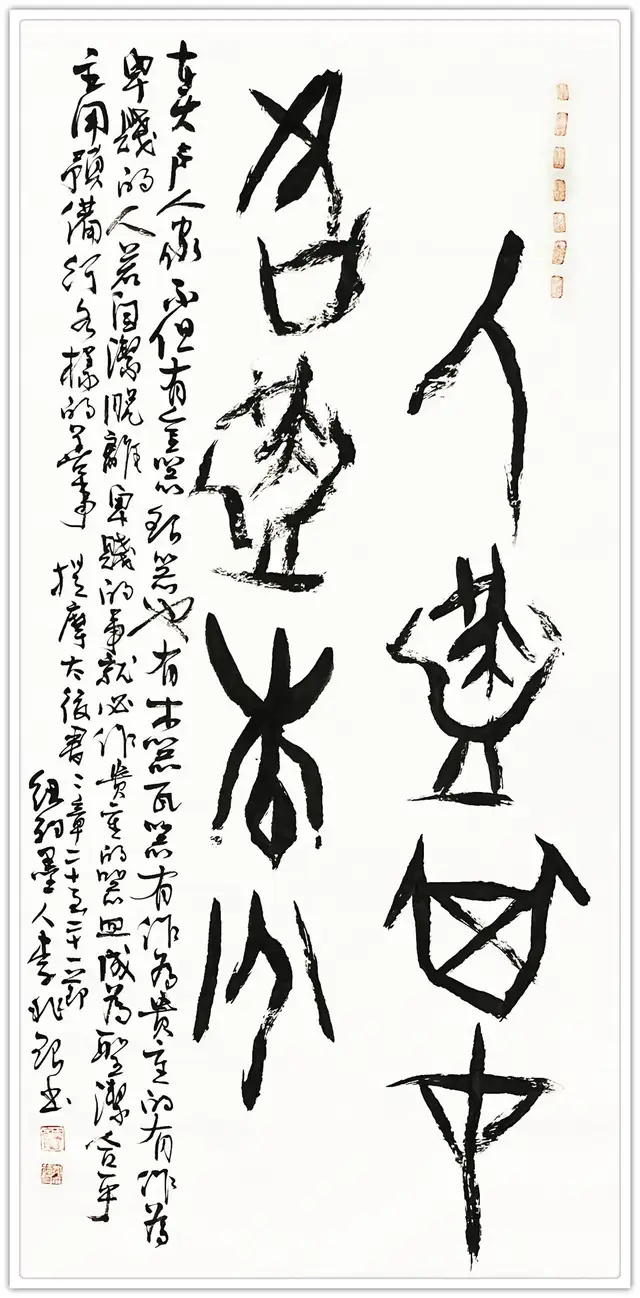 人盡其才
各盡本分
在大户人家不但有金器銀器也有木器瓦器有作為貴重的有作為
卑賤的人若自潔脫離卑賤的事就必作貴重的器皿成為聖潔合乎
主用預備行各樣的善事 提摩太後書二章二十至二十一節
紐約墨人李兆銀书